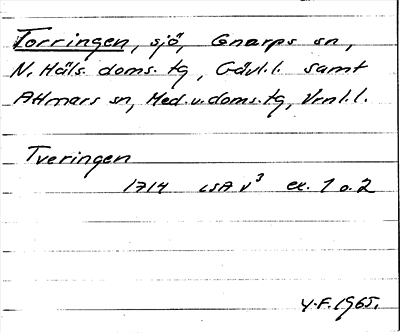 Torringen, sjö, Gnarps sn,
N. Häls. doms. tg, Gävl.l. samt
Attmars sn, Med.v.doms.tg, Vrnl.l.
Tveringen
1714 LSA v³ ex. 1 o. 2
Y.F. 1965.